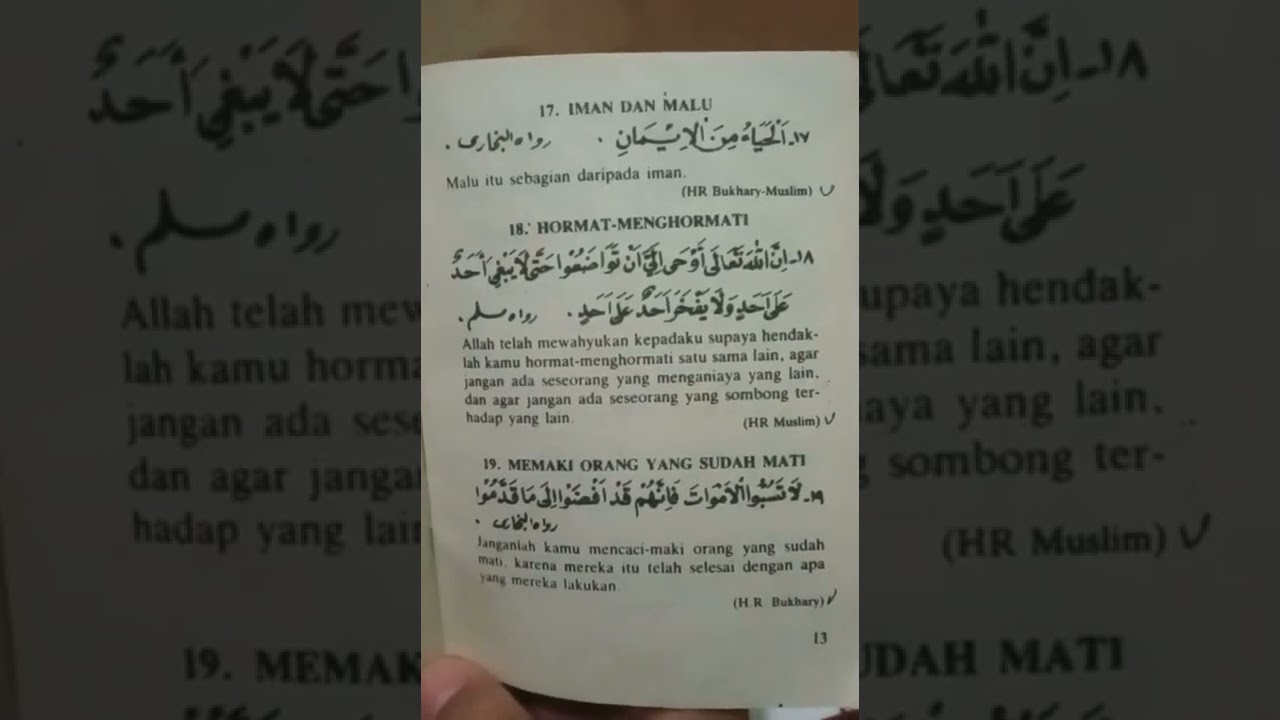 17. IMAN DAN MALU
١٧- اَلْحَيَاءُ مِنَ الْاِيْمَانِ . رواه البخارى .
Malu itu sebagian daripada iman.
(HR Bukhary-Muslim)
18. HORMAT-MENGHORMATI
١٨- اِنَّ اللهَ تَعَالَى أَوْحَى اِلَيَّ اَنْ تَوَاضَعُوا حَتَّى لَا يَبْغِيَ اَحَدٌ
عَلَى اَحَدٍ وَلَا يَفْخَرَ اَحَدٌ عَلَى اَحَدٍ . رواه مسلم .
Allah telah mewahyukan kepadaku supaya hendak-
lah kamu hormat-menghormati satu sama lain, agar
jangan ada seseorang yang menganiaya yang lain,
dan agar jangan ada seseorang yang sombong ter-
hadap yang lain.
(HR Muslim)
19. MEMAKI ORANG YANG SUDAH MATI
١٩- لَا تَسُبُّوا الْاَمْوَاتَ فَاِنَّهُمْ قَدْ اَفْضَوْا اِلَى مَا قَدَّمُوْا
رواه البخارى .
Janganlah kamu mencaci-maki orang yang sudah
mati, karena mereka itu telah selesai dengan apa
yang mereka lakukan
(H.R. Bukhary)
13